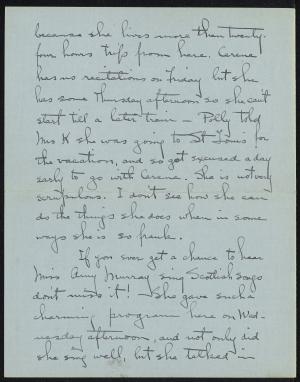 because she lives more than twenty-
four hours trip from here. Cerene
has no recitations on Friday but she
has some Thursday afternoon so she can't
start till a later train – Polly told
Mrs K she was going to St Louis for
the vacation, and so got excused a day
early to go with Cerene. She is not very
scrupulous. I don't see how she can
do the things she does when in some
ways she is so frank.
If you ever get a chance to hear
Miss Amy Murray sing Scottish songs
don't miss it! She gave such a
charming program here on Wed-
nesday afternoon, and not only did
she sing well, but she talked in